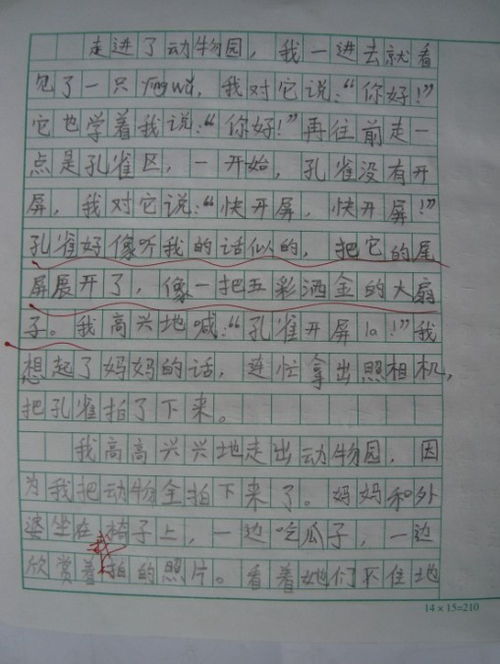 走进了动物园，我一进去就看
见了一只yīng wǔ，我对它说：“你好！”
它也学着我说：“你好！”再往前走一
点是孔雀区，一开始，孔雀没有开
屏，我对它说：“快开屏，快开屏！”
孔雀好像听我的话似的，把它的尾
屏展开了，像一把五彩洒金的大扇
子。我高兴地喊：“孔雀开屏la！”我
想起了妈妈的话，连忙拿出照相机，
把孔雀拍了下来。
我高高兴兴地走出动物园，因
为我把动物全拍下来了。妈妈和外
婆坐在椅子上，一边吃瓜子，一边
欣赏着拍的照片。看着她们不住地
14×15=210